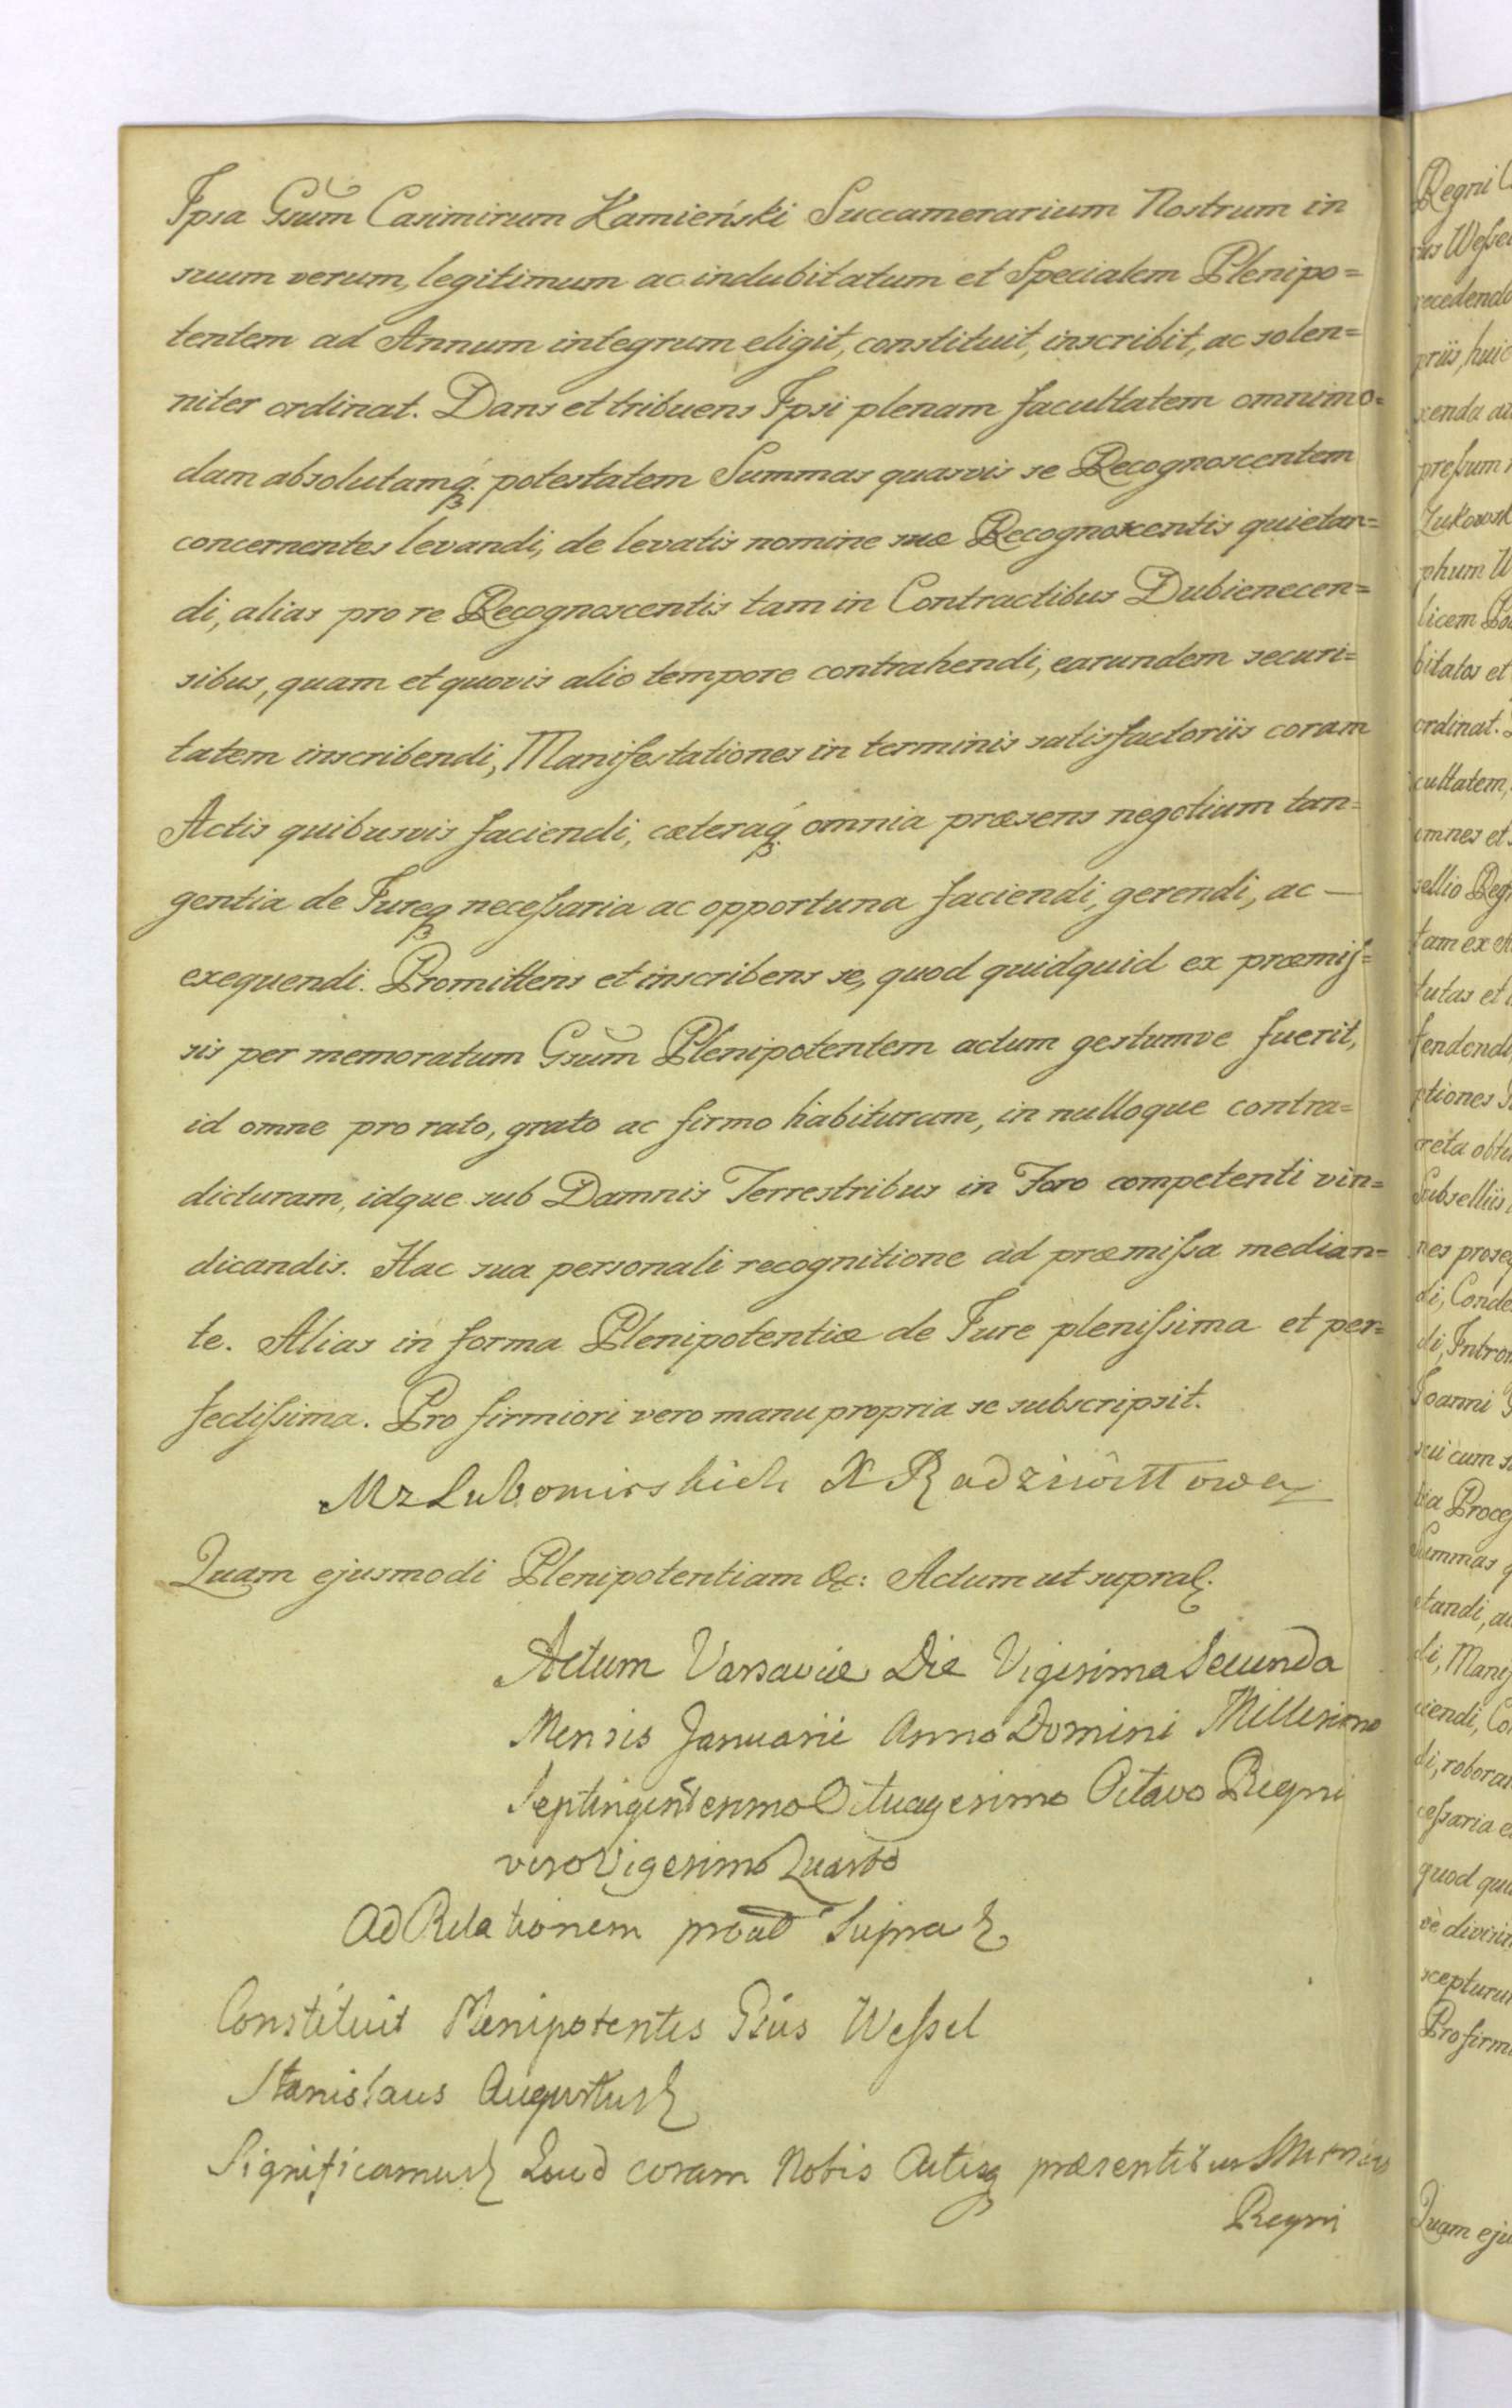 Ipsa Gsum Casimirum Kamieński Succamerarium Nostrum in
suum verum, legitimum ac indubitatum et Specialem Plenipo=
tentem ad Annum integrum eligit, constituit, inscribit, ac solen=
niter ordinat. Dans et tribuens Ipsi plenam facultatem omnimo=
dam absolutamq; potestatem Summas quasvis se Recognoscentem
concernentes levandi, de levatis nomine suæ Recognoscentis quietan=
di, alias pro re Recognoscentis tam in Contractibus Dubienecen=
sibus, quam et quovis alio tempore contrahendi, earundem securi=
tatem inscribendi, Manifestationes in terminis satisfactoriis coram
Actis quibusvis faciendi, cæteraq; omnia præsens negotium tan=
gentia de Jureq; necessaria ac opportuna faciendi, gerendi, ac —
exequendi. Promittens et inscribens se, quod quidquid ex præmis=
sis per memoratum Gsum Plenipotentem actum gestumve fuerit,
id omne pro rato, grato ac firmo habiturum, in nulloque contra=
dicturam, idque sub Damnis Terrestribus in Foro competenti vin=
dicandis. Hac sua personali recognitione ad præmissa median=
te. Alias in forma Plenipotentiæ de Jure plenissima et per=
fectissima. Pro firmiori vero manu propria se subscripsit.
M z Lubomirskich X Radziwiłłowa
Quam ejusmodi Plenipotentiam &c: Actum ut supra
Actum Varsaviæ Die Vigesima Secunda
Mensis Januarii Anno Domini Millesimo
Septingentesimo Octuagesimo Octavo Regni
vero Vigesimo Quarto
Ad Relationem prout Supra
Constituit Plenipotentes Gsus Wessel
Stanislaus Augustus
Significamus Quod coram Nobis Actisq; præsentibus
Regni
Regni
priis, huic
Quam eju